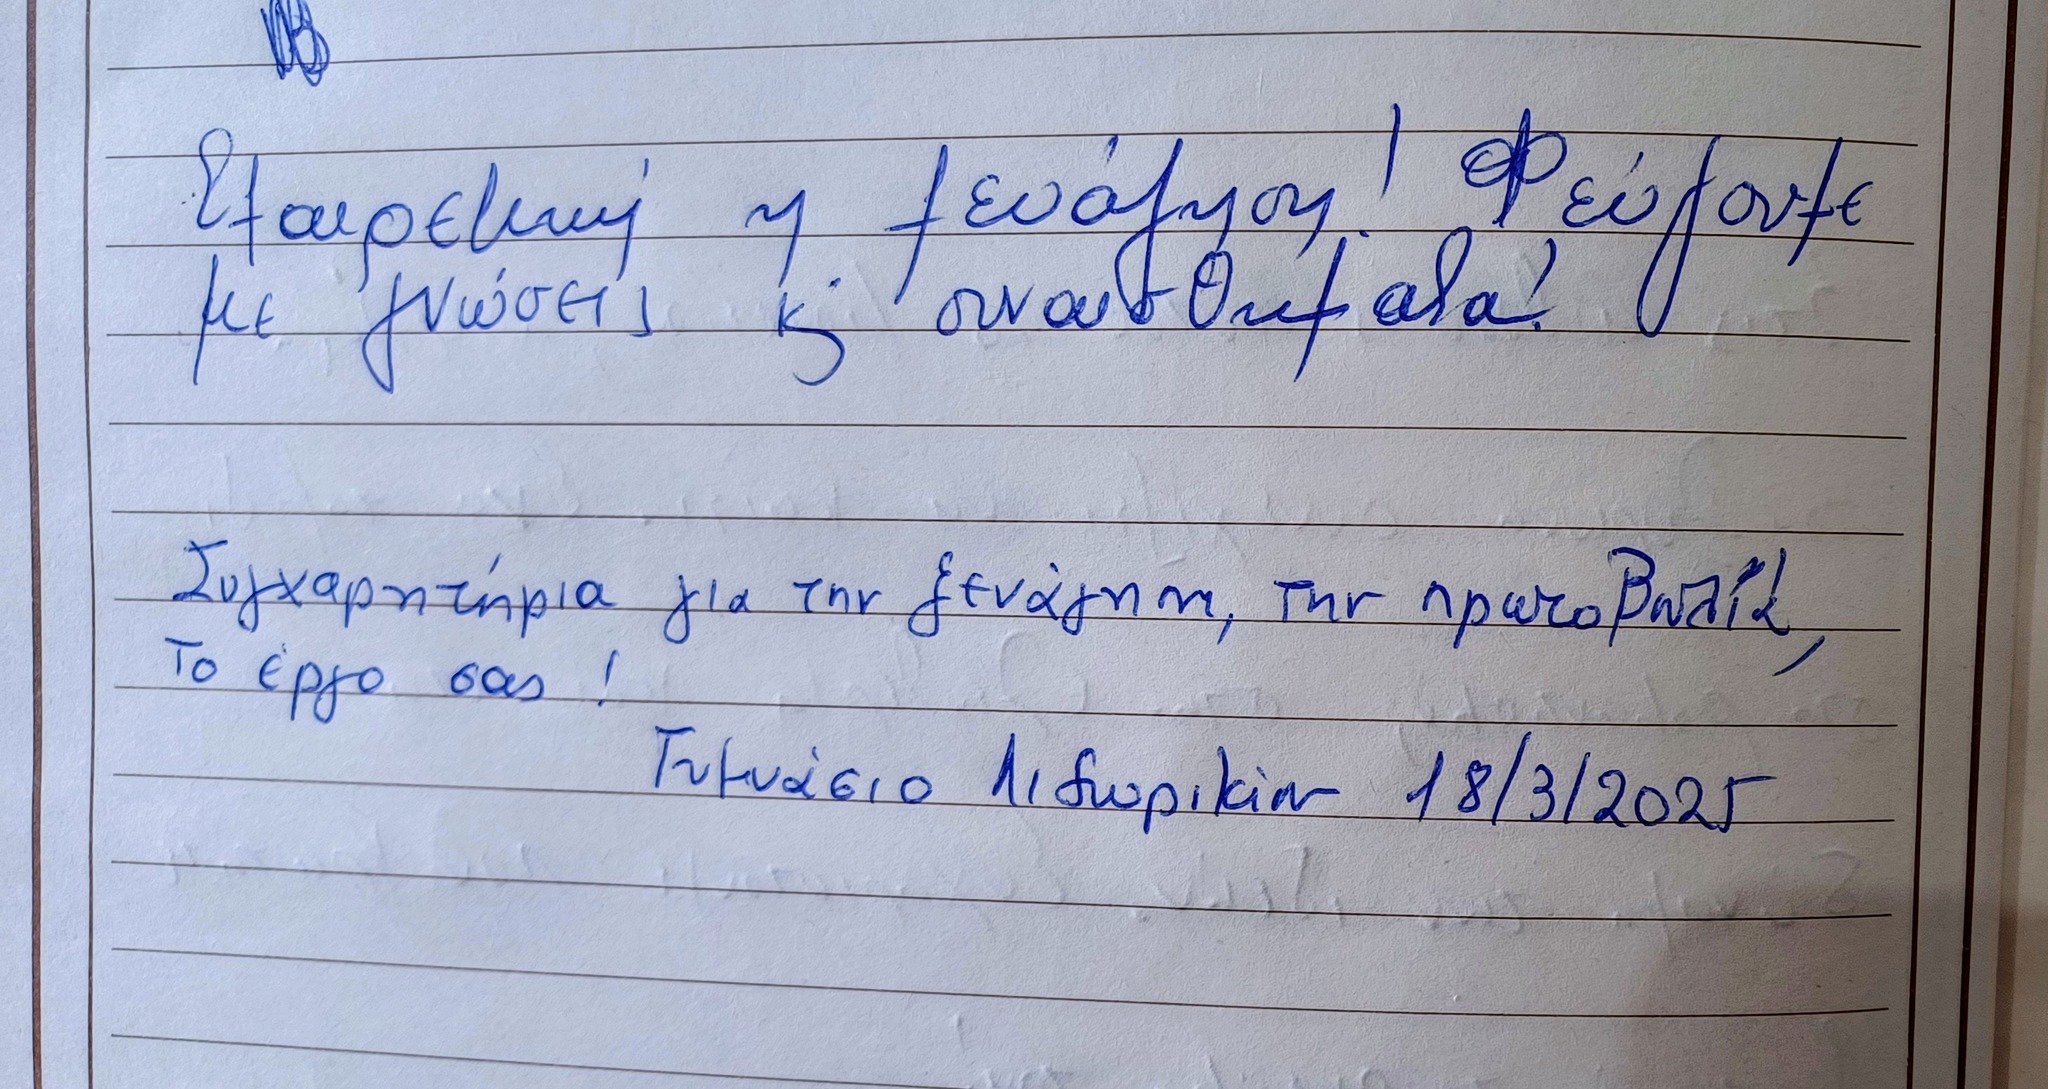 Εξαιρετική η ξενάγηση! Φεύγουμε
με γνώσεις κ' συναισθήματα!
Συγχαρητήρια για την ξενάγηση, την πρωτοβουλία,
το έργο σας!
Γυμνάσιο Λιδωρικίου 18/3/2025